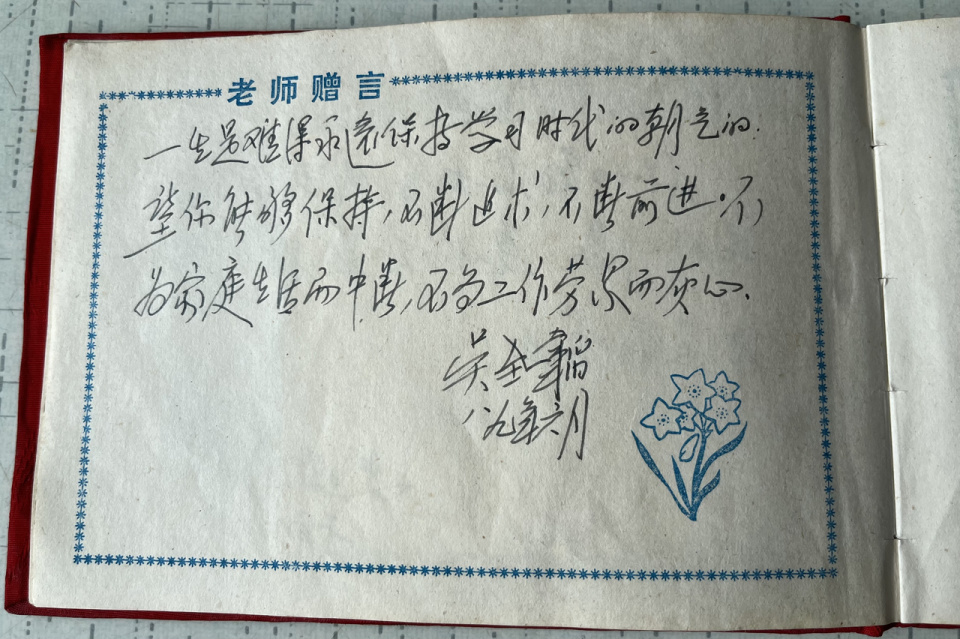 老师赠言
一生是难得永远保持学习时代的朝气的.
望你能够保持,不断追求,不断前进。不
为家庭生活而中断,不为工作劳累而灰心.
吴
八九年六月